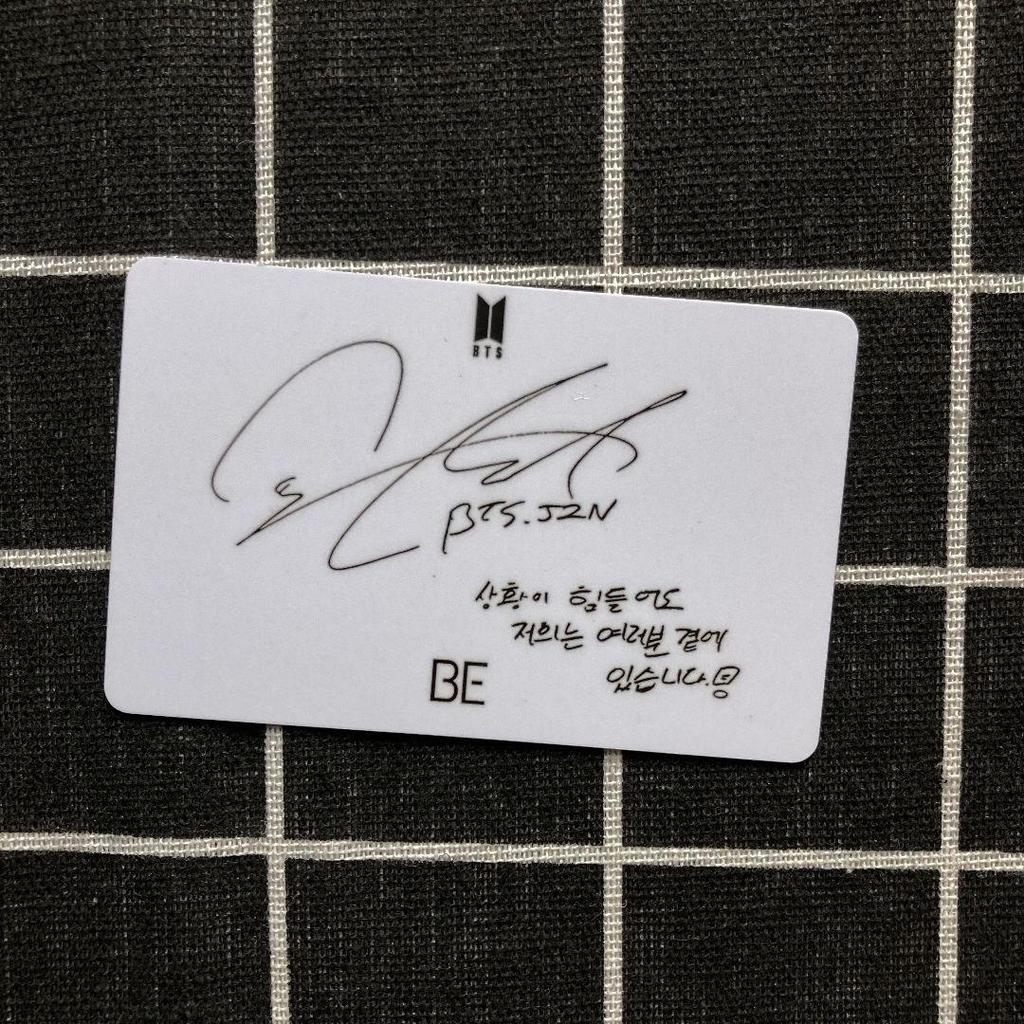 BTS
BTS.JIN
상황이 힘들어도
저희는 여러분 곁에
있습니다.
BE